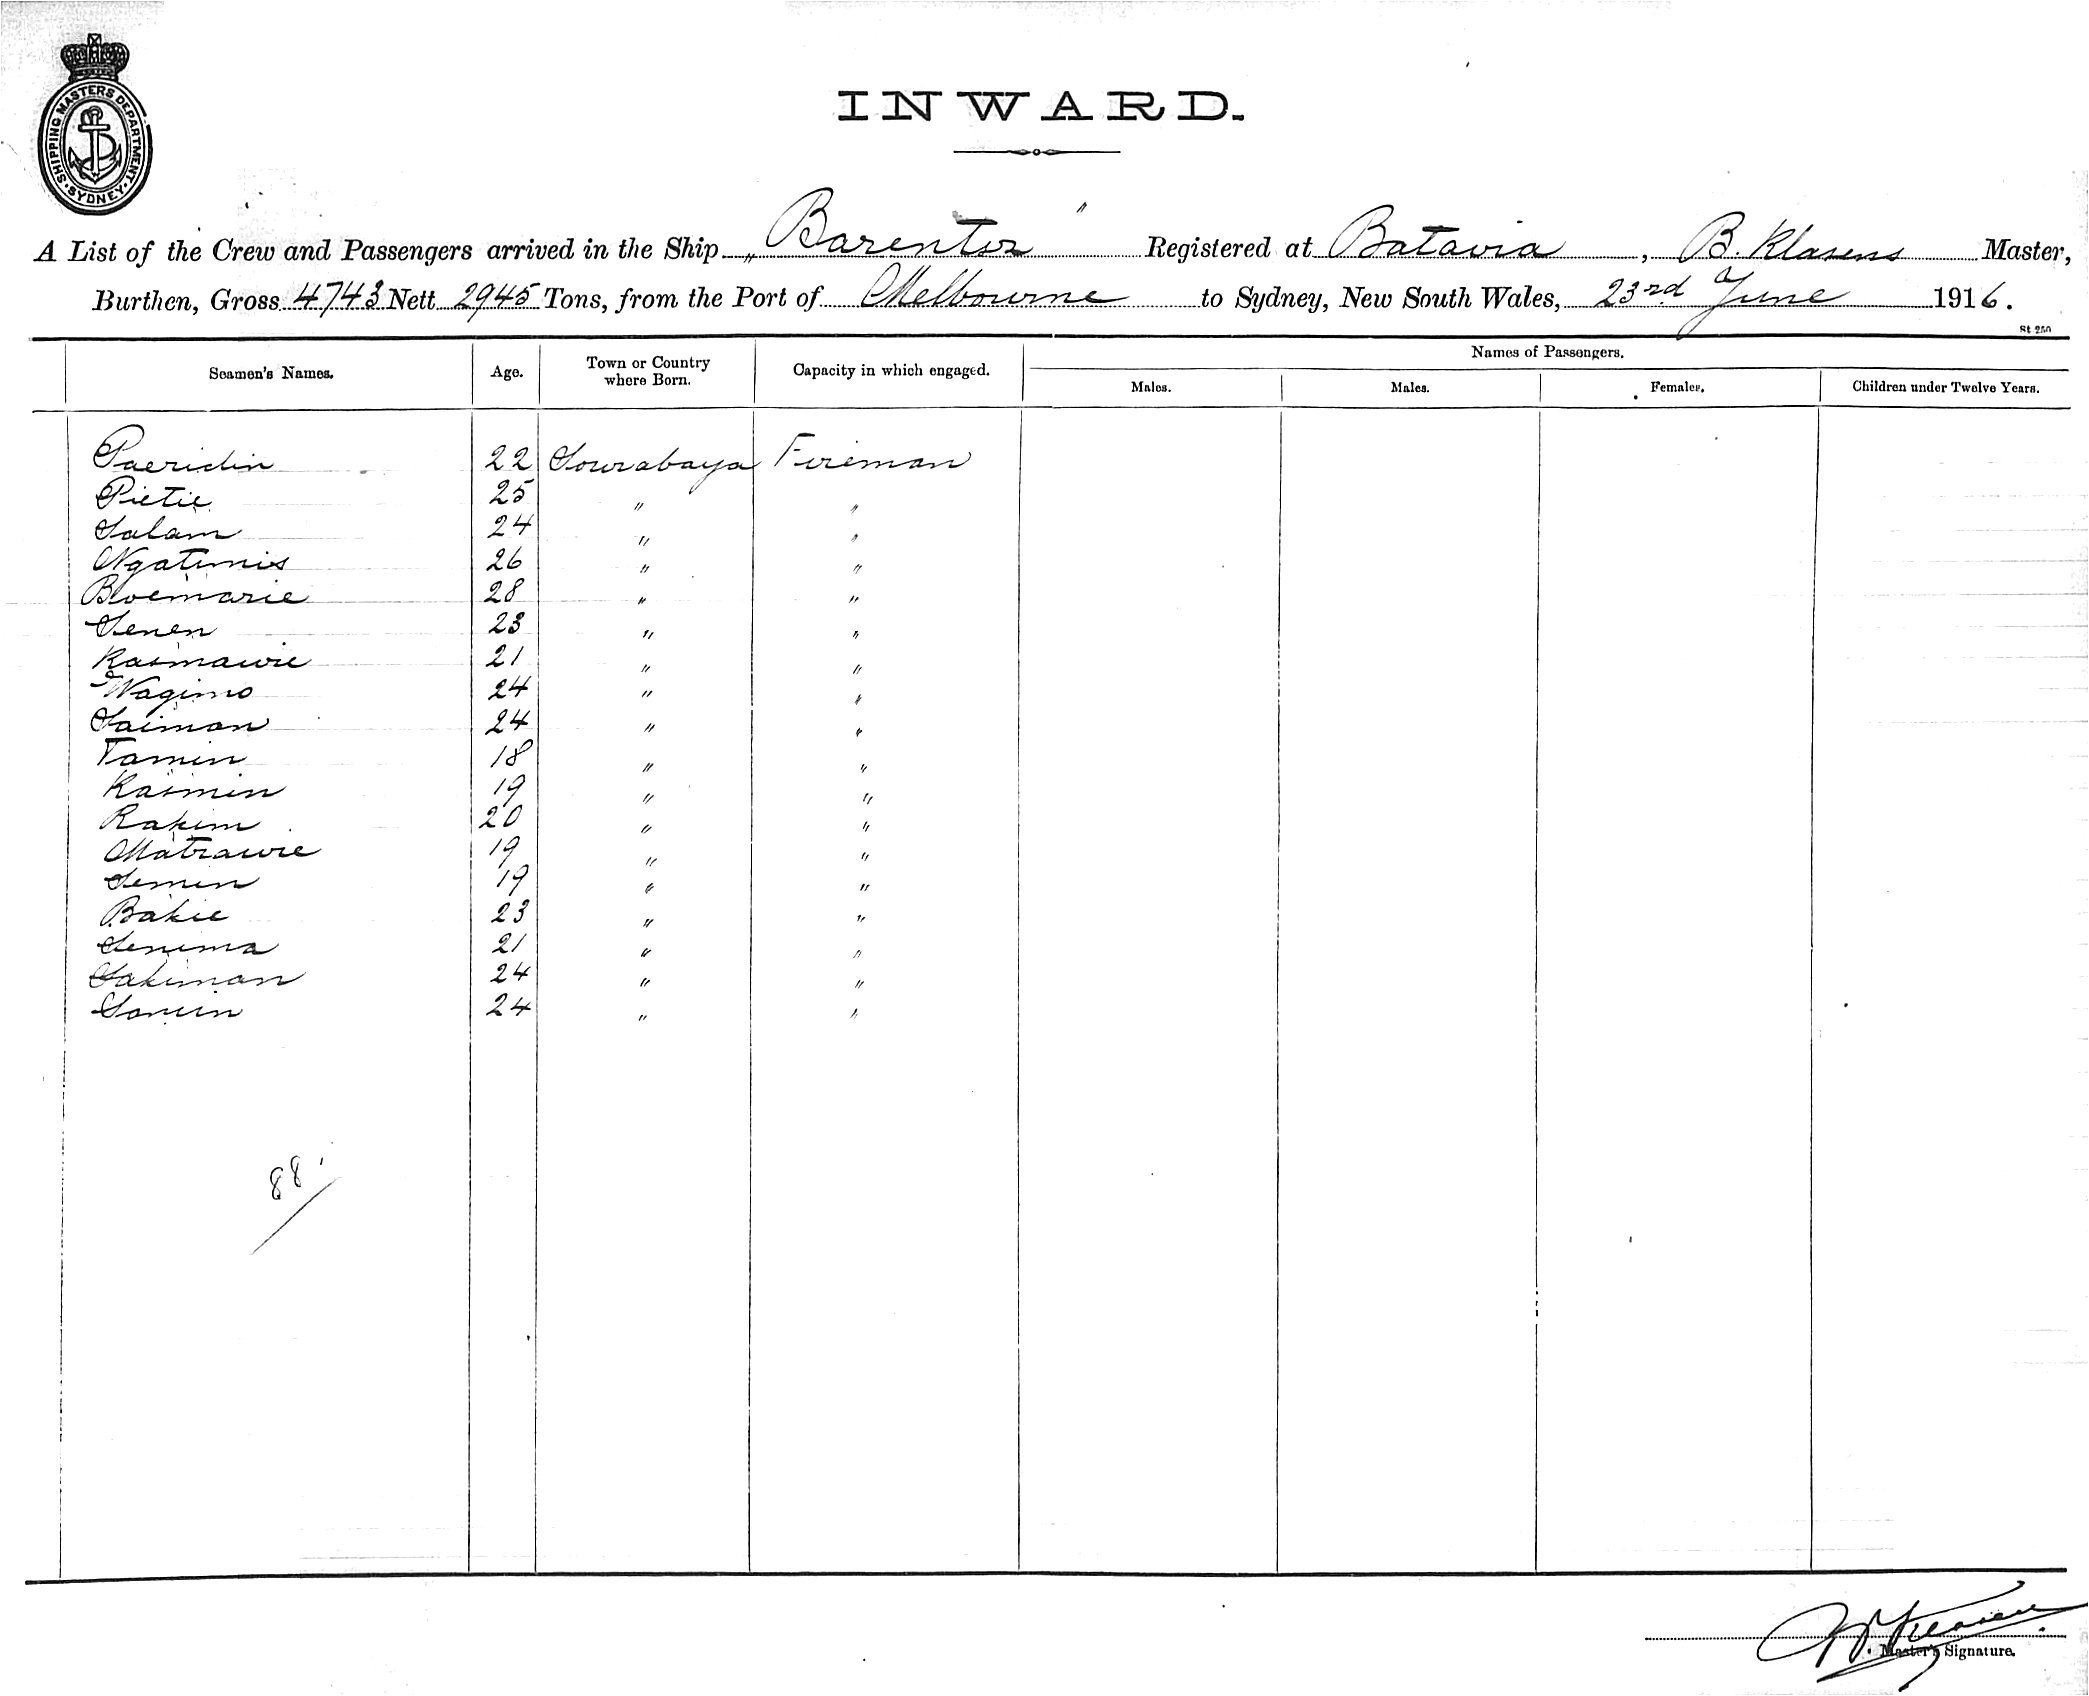 SHIPPING MASTERS DEPARTMENT · SYDNEY ·
INWARD.
A List of the Crew and Passengers arrived in the Ship „ Barentsz " Registered at Batavia , B. Klasens Master,
Burthen, Gross 4743 Nett 2945 Tons, from the Port of Melbourne to Sydney, New South Wales, 23rd June 1916.
St 250
Seamen's Names. Age. Town or Country where Born. Capacity in which engaged. Names of Passengers.
Males. Males. Females. Children under Twelve Years.
Paeridin 22 Sourabaya Fireman
Pietie 25 " "
Salam 24 " "
Ngatimis 26 " "
Boemarie 28 " "
Senen 23 " "
Kasmawie 21 " "
Wagimo 24 " "
Saiman 24 " "
Tamin 18 " "
Kasmin 19 " "
Rakim 20 " "
Matrawie 19 " "
Semin 19 " "
Bakie 23 " "
Senima 21 " "
Sakiman 24 " "
24 " "
88
Master's Signature.